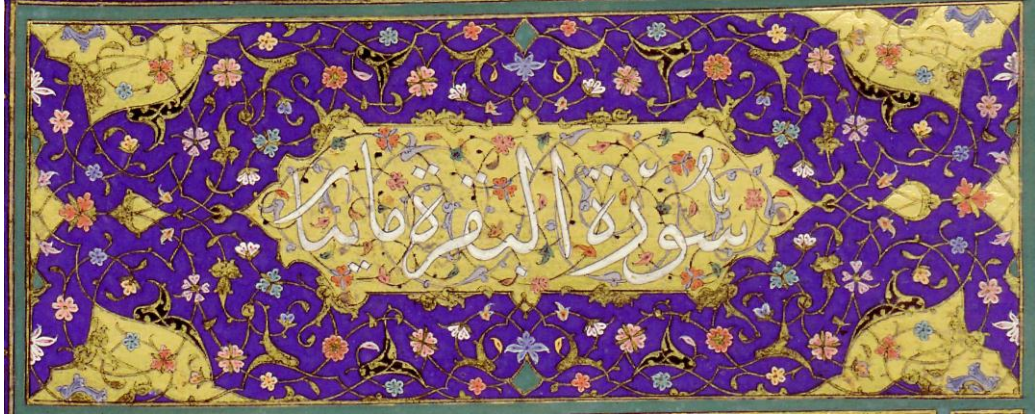 سُوّرة البقرة مايتا